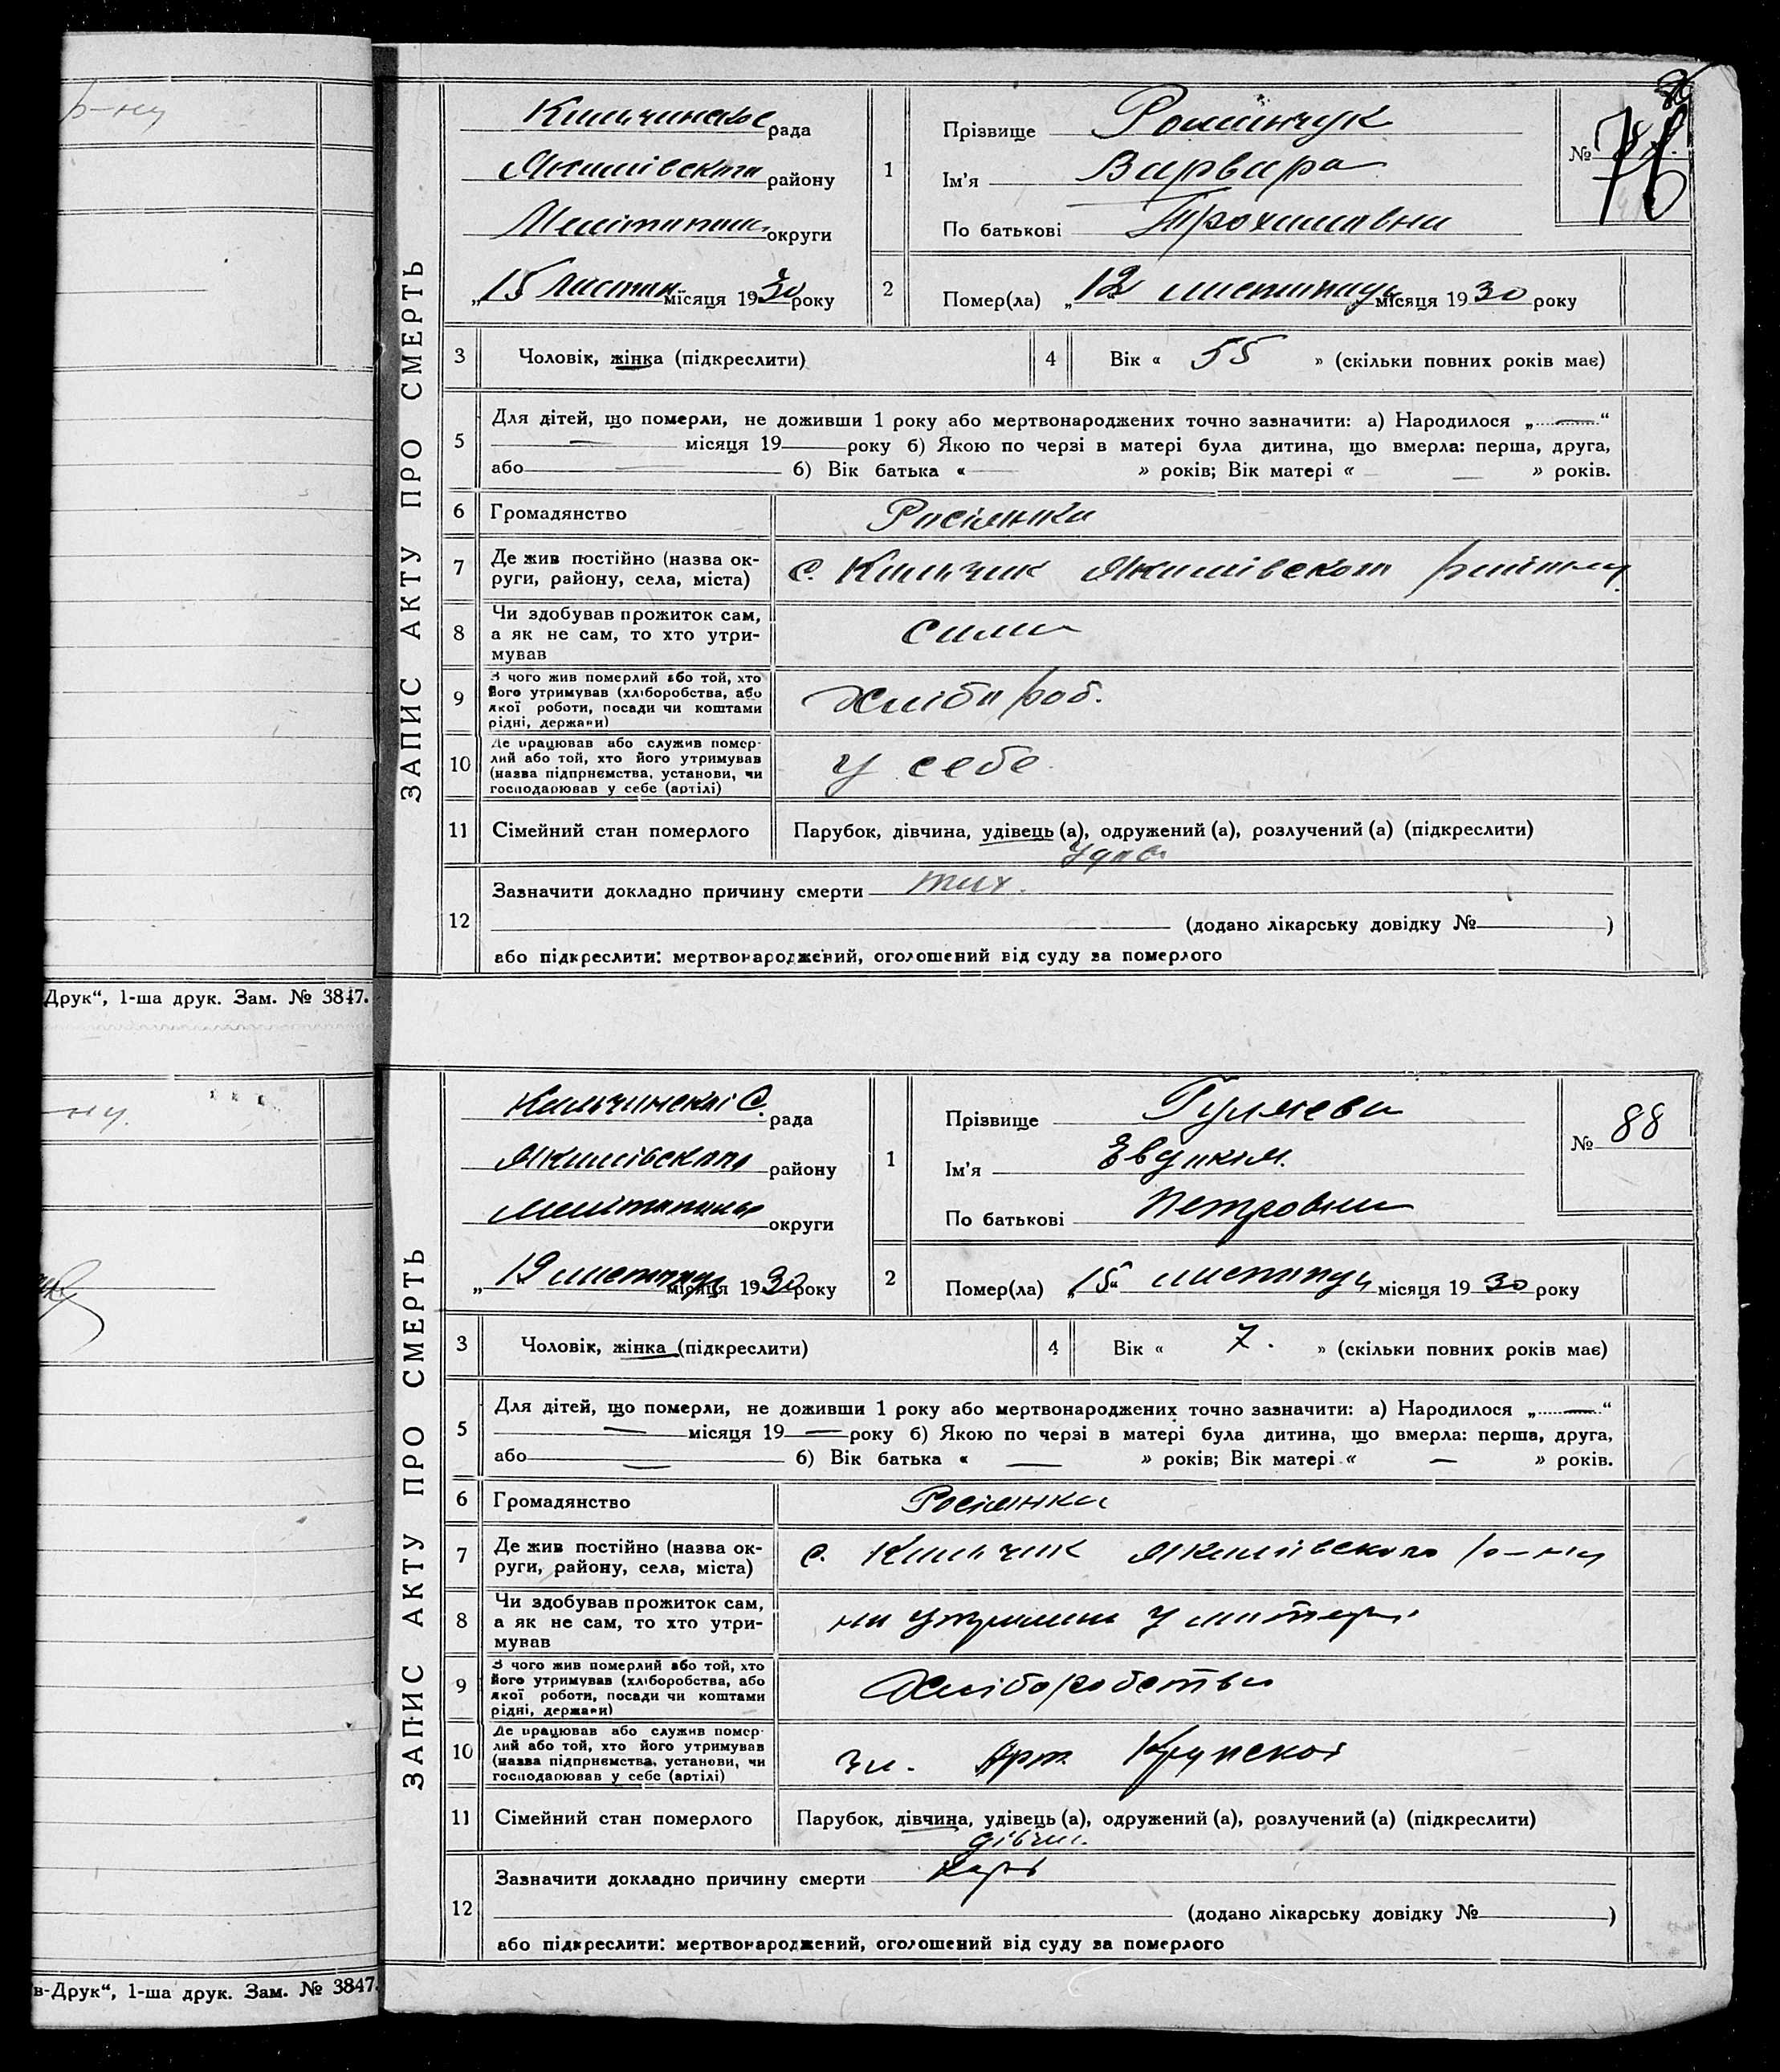 р-ну
Друк“, 1-ша друк. Зам. № 3847.
ну.
в-Друк“, 1-ша друк. Зам. № 3847.
ЗАПИС АКТУ ПРО СМЕРТЬ
рада
району
округи
„15 листоп. місяця 1930 року
1
Прізвище Романчук
Ім'я Варвара
По батькові Трохимовна
№
76
2
Помер(ла) „12 листопаду місяця 1930 року
3 Чоловік, жінка (підкреслити)
4 Вік « 55 » (скільки повних років має)
5 Для дітей, що померли, не доживши 1 року або мертвонароджених точно зазначити: а) Народилося „—“
— місяця 19 року б) Якою по черзі в матері була дитина, що вмерла: перша, друга,
або — б) Вік батька «— » років; Вік матері « — » років.
6 Громадянство Росіянка
7 Де жив постійно (назва ок-
руги, району, села, міста)
с. Кильчик Якимівского району.
8 Чи здобував прожиток сам,
а як не сам, то хто утри-
мував
сама
9 З чого жив померлий або той, хто
його утримував (хліборобства, або
якої роботи, посади чи коштами
рідні, держави)
хлібороб.
10 Де працював або служив помер-
лий або той, хто його утримував
(назва підприємства, установи, чи
господарював у себе (артілі)
у себе
11 Сімейний стан померлого
Парубок, дівчина, удівець (а), одружений (а), розлучений (а) (підкреслити)
удова
12 Зазначити докладно причину смерти
(додано лікарську довідку № )
або підкреслити: мертвонароджений, оголошений від суду за померлого
ЗАПИС АКТУ ПРО СМЕРТЬ
рада
Якимівского району
округи
„19 листопаду місяця 1930 року
1
Прізвище Гуляева
Ім'я Евдокия.
По батькові Петровна
№ 88
2
Помер(ла) „15“ листопаду місяця 1930 року
3 Чоловік, жінка (підкреслити)
4 Вік « 7. » (скільки повних років має)
5 Для дітей, що померли, не доживши 1 року або мертвонароджених точно зазначити: а) Народилося „—“
— місяця 19 — року б) Якою по черзі в матері була дитина, що вмерла: перша, друга,
або — б) Вік батька « — » років; Вік матері « — » років.
6 Громадянство Росіянка
7 Де жив постійно (назва ок-
руги, району, села, міста)
с. Кильчик Якимівского р-ну
8 Чи здобував прожиток сам,
а як не сам, то хто утри-
мував
на утримани у матері
9 З чого жив померлий або той, хто
його утримував (хліборобства, або
якої роботи, посади чи коштами
рідні, держави)
Хліборобства
10 Де працював або служив помер-
лий або той, хто його утримував
(назва підприємства, установи, чи
господарював у себе (артілі)
чл. Арт. Крупскої
11 Сімейний стан померлого
Парубок, дівчина, удівець (а), одружений (а), розлучений (а) (підкреслити)
дівчи.
12 Зазначити докладно причину смерти
(додано лікарську довідку № )
або підкреслити: мертвонароджений, оголошений від суду за померлого